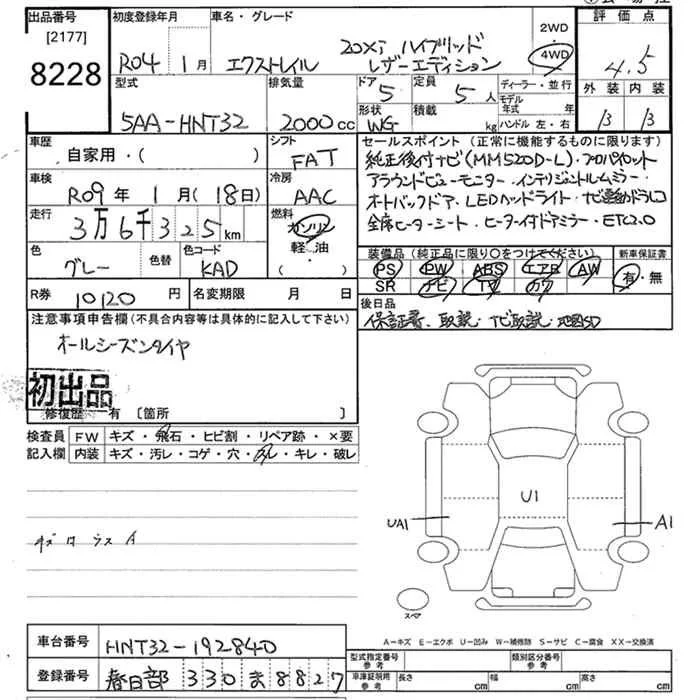 出品番号
[2177]
8228
初度登録年月
R04 1月
車名・グレード
20Xi ハイブリッド
エクストレイル レザーエディション
2WD
・
4WD
評価点
4.5
外装 内装
B B
型式
5AA-HNT32
排気量
2000cc
ドア
5
定員
5人
ディーラー・並行
形状
WG
積載
kg
モデル年式 年
ハンドル 左・右
車歴
自家用・( )
シフト
FAT
車検
R09年 1月(18日)
冷房
AAC
走行
3万6千325km
燃料
ガソリン
軽油
( )
色
グレー
色替
色コード
KAD
R券
10120円
名変期限 月 日
セールスポイント(正常に機能するものに限ります)
純正後付ナビ(MM520D-L)・プロパイロット
アラウンドビューモニター・インテリジェントルームミラー・
オートバックドア・LEDヘッドライト・ナビ連動ドラレコ
全席ヒーターシート・ヒーター付ドアミラー・ETC2.0
装備品(純正品に限り〇をつけてください)
PS PW ABS エアB AW
SR ナビ TV カワ
新車保証書
有・無
後日品
保証書、取説・ナビ取説・地図SD
注意事項申告欄(不具合内容等は具体的に記入して下さい)
オールシーズンタイヤ
初出品
修復歴 有 [箇所 ]
検査員記入欄
FW キズ・飛石・ヒビ割・リペア跡・×要
内装 キズ・汚レ・コゲ・穴・スレ・キレ・破レ
U1
UA1
A1
スペア
A－キズ E－エクボ U－凹み W－補修跡 S－サビ C－腐食 XX－交換済
車台番号
HNT32-192840
登録番号
春日部 330 ま 8827
型式指定番号
参考
類別区分番号
参考
車庫証明用
参考
長さ cm
幅 cm
高さ cm